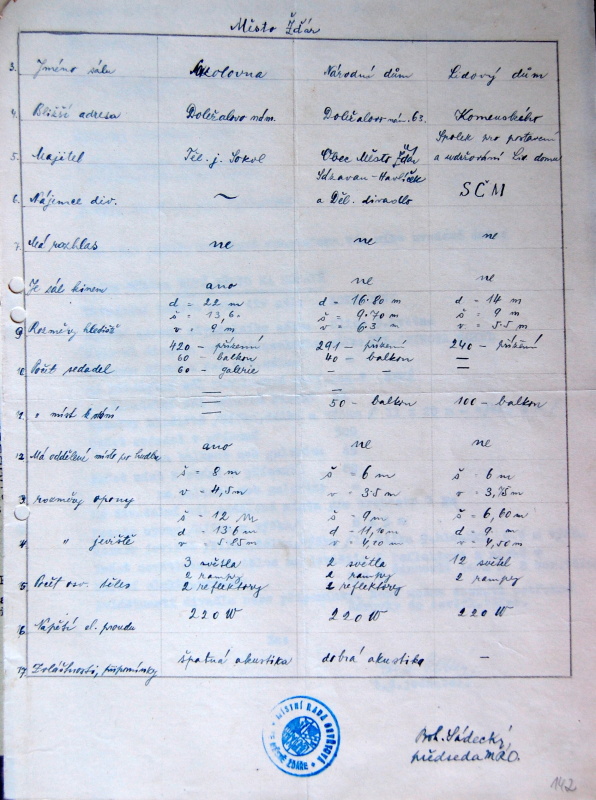 Město Žďár
3. Jméno sálu Sokolovna Národní dům Lidový dům
4. Bližší adresa Doležalovo nám. Doležalovo nám. 63. Komenského
5. Majitel Těl. j. Sokol Obec Město Žďár Spolek pro postavení
a udržování Lid. domu
6. Nájemce div. ~ Sázavan-Havlíček
a Děl. divadlo SČM
7. Má rozhlas ne ne ne
Je sál kinem ano ne ne
9. Rozměry hlediště d = 22 m d = 16.80 m d = 14 m
š = 13,6. š = 9.70 m š = 9 m
v = 9 m v = 6.3 m v = 5.5 m
10. Počet sedadel 420 - přízemí 291 - přízemí 240 - přízemí
60 - balkon 40 - balkon
60 - galerie
" míst k stání 50 - balkon 100 - balkon
12. Má oddělené místo pro hudbu ano ne ne
3. rozměry opony š = 8 m š = 6 m š = 6 m
v = 4,5 m v = 3.5 m v = 3,75 m
4. " jeviště š = 12 m š = 9 m š = 6,60 m
d = 13.6 m d = 11,10 m d = 9 m
v = 5.85 m v = 4,50 m v = 4,50 m
5. Počet osv. těles 3 světla 2 světla 12 světel
2 rampy 2 rampy 2 rampy
2 reflektory 2 reflektory
16. Napětí el. proudu 220 W 220 W 220 W
17. Zvláštnosti, připomínky špatná akustika dobrá akustika –
MÍSTNÍ RADA OSVĚTOVÁ
ŽĎÁŘE
Boh. Sádecký
předseda MRO.
142